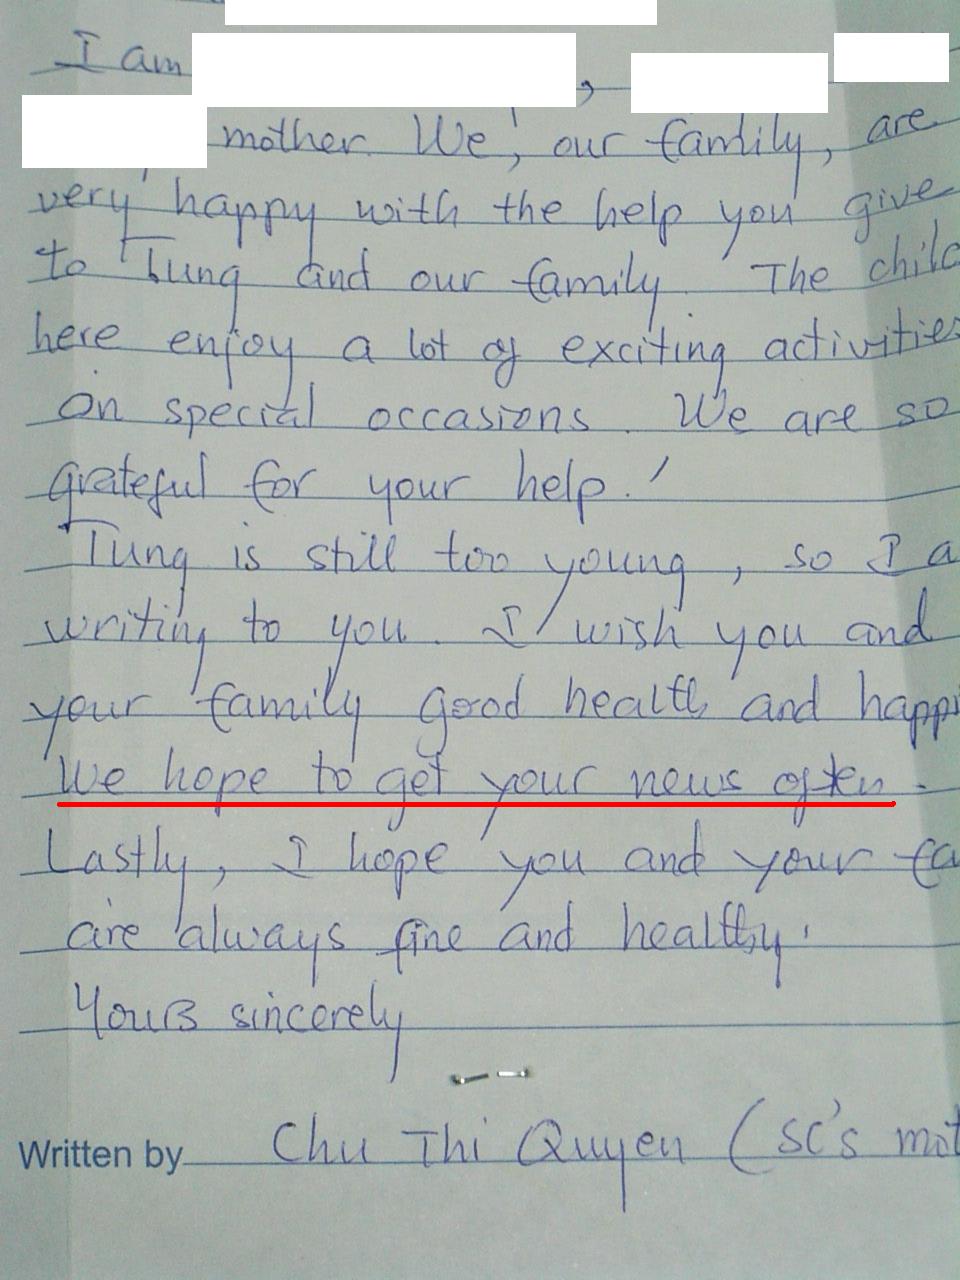 I am ,
mother. We, our family, are
very happy with the help you give
to Tung and our family. The child
here enjoy a lot of exciting activities
on special occasions. We are so
grateful for your help!
Tung is still too young, so I a
writing to you. I wish you and
your family good health and happi
We hope to get your news often.
Lastly, I hope you and your fa
are always fine and healthy.
Yours sincerely
Written by Chu Thi Quyen (SC's mot